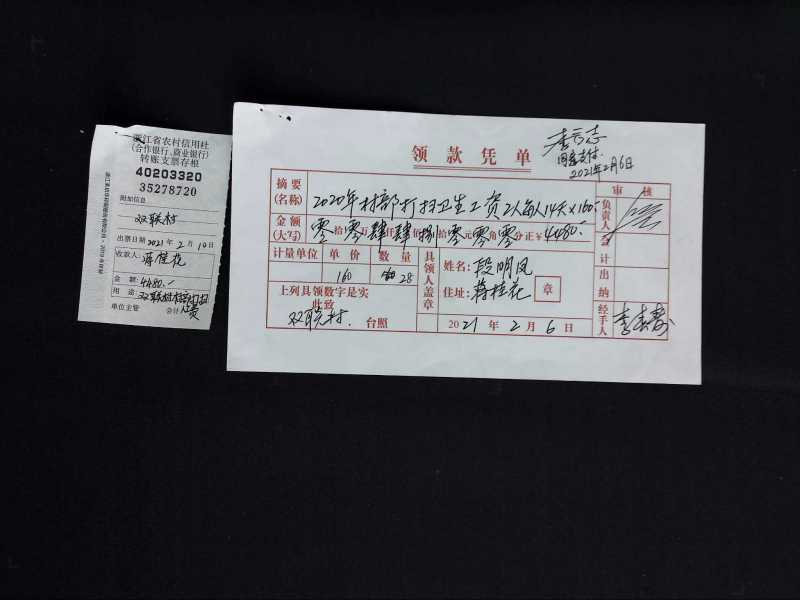 浙江省农村信用社
(合作银行、商业银行)
转账支票存根
40203320
35278720
附加信息
双联村
出票日期 2021 年 2 月 10 日
收款人: 蒋桂花
金 额: 4480.-
用 途: 双联村村部打扫
单位主管 会计
领款凭单
同意支付.
2021年2月6日
摘要
(名称)
2020年村部打扫卫生工资2人每人14天×160.-
金额
(大写)
零拾零万肆仟肆佰捌拾零元零角零分正¥4480.-
计量单位 单价 数量
160 28
上列具领数字是实
此致
双联村. 台照
具领人盖章
姓名: 段明凤
住址: 蒋桂花
章
2021 年 2 月 6 日
审核
负责人
会计
出纳
经手人